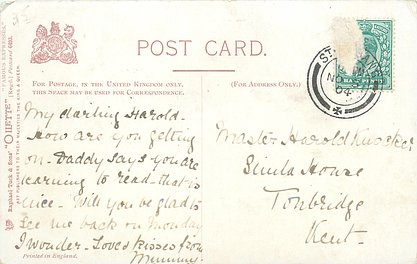 POST CARD.
FOR POSTAGE, IN THE UNITED KINGDOM ONLY,
THIS SPACE MAY BE USED FOR CORRESPONDENCE.
(FOR ADDRESS ONLY.)
My darling Harold-
How are you getting
on- Daddy says you are
learning to read- that is
nice. Will you be glad to
see me back on Monday
I wonder- Love & kisses from
Mummy.
Master Harold
Simla House
Tonbridge
Kent.
Printed in England.
Raphael Tuck & Sons' "OILETTE"
ART PUBLISHERS TO THEIR MAJESTIES THE KING & QUEEN.